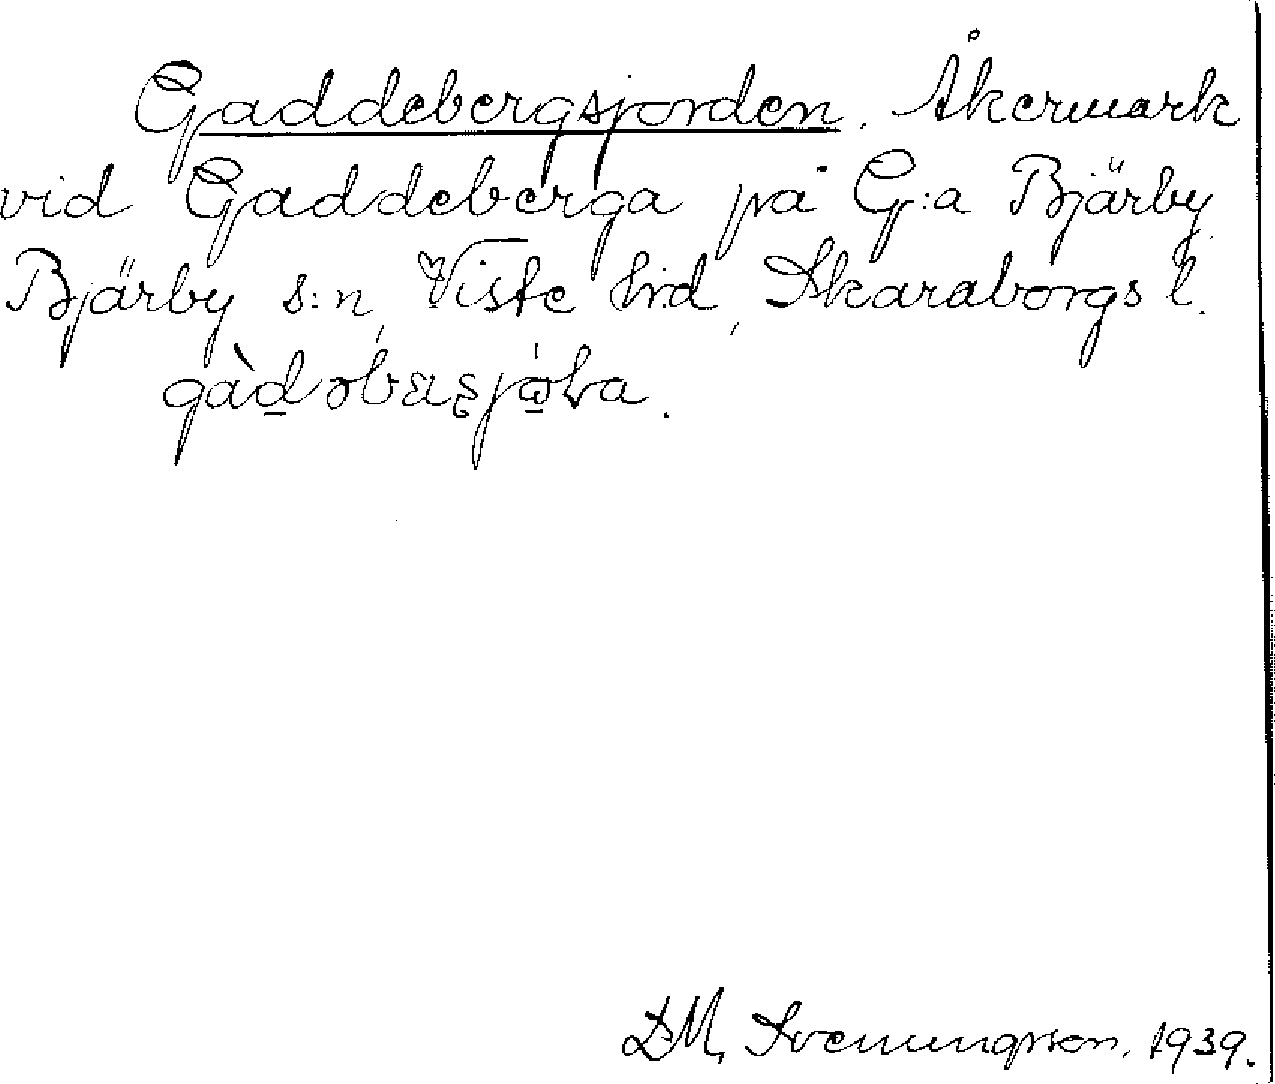 Gaddebergsjorden. Åkermark
vid Gaddeberga på G:a Bjärby,
Bjärby s:n, Viste hrd, Skaraborgs l.
D.M. Svenungsson. 1939.